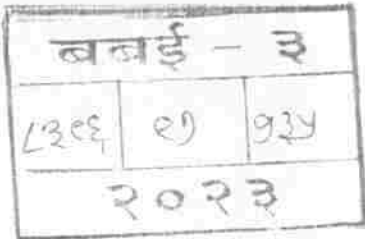 बबई - ३
८३९६ ९७ १३५
२०२३